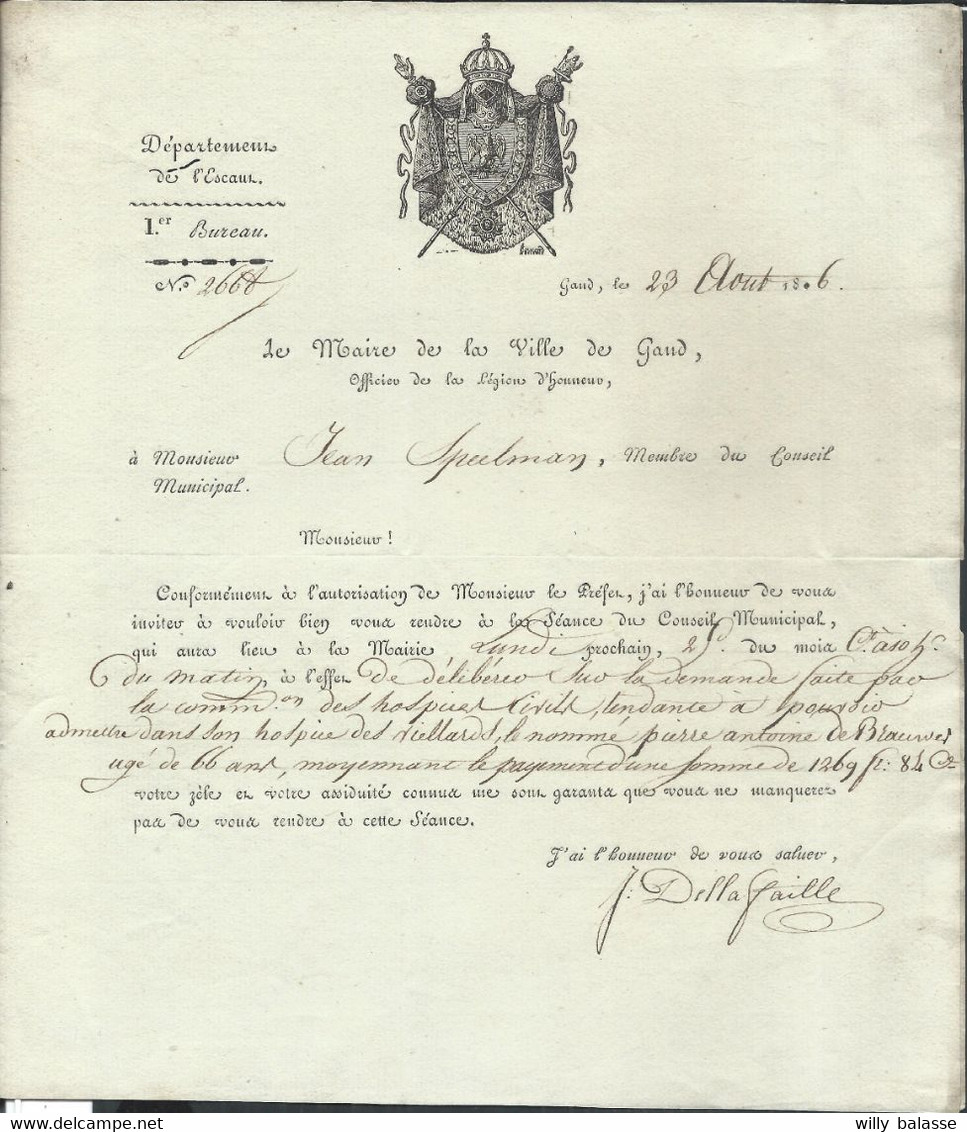 Département
de l'Escaut.
1.er Bureau.
N.º 2668
Gand, le 23 Aout 1806.
Le Maire de la Ville de Gand,
Officier de la Légion d'honneur,
à Monsieur Jean Speelman, Membre du Conseil
Municipal.
Monsieur!
Conformément à l'autorisation de Monsieur le Préfet, j'ai l'honneur de vous
inviter à vouloir bien vous rendre à la Séance du Conseil Municipal,
qui aura lieu à la Mairie, Lundi prochain, 25 du mois
du matin, à l'effet de délibérer sur la demande faite par
la comm.on des hospices Civils, tendante à pouvoir
admettre dans son hospice des viellards, le nommé pierre antoine de Brauwer
agé de 66 ans, moyennant le payement d'une somme de 1269 f: 84 C.
votre zèle et votre assiduité connus me sont garants que vous ne manquerez
pas de vous rendre à cette Séance.
J'ai l'honneur de vous saluer,
J: Della Faille
willy balasse